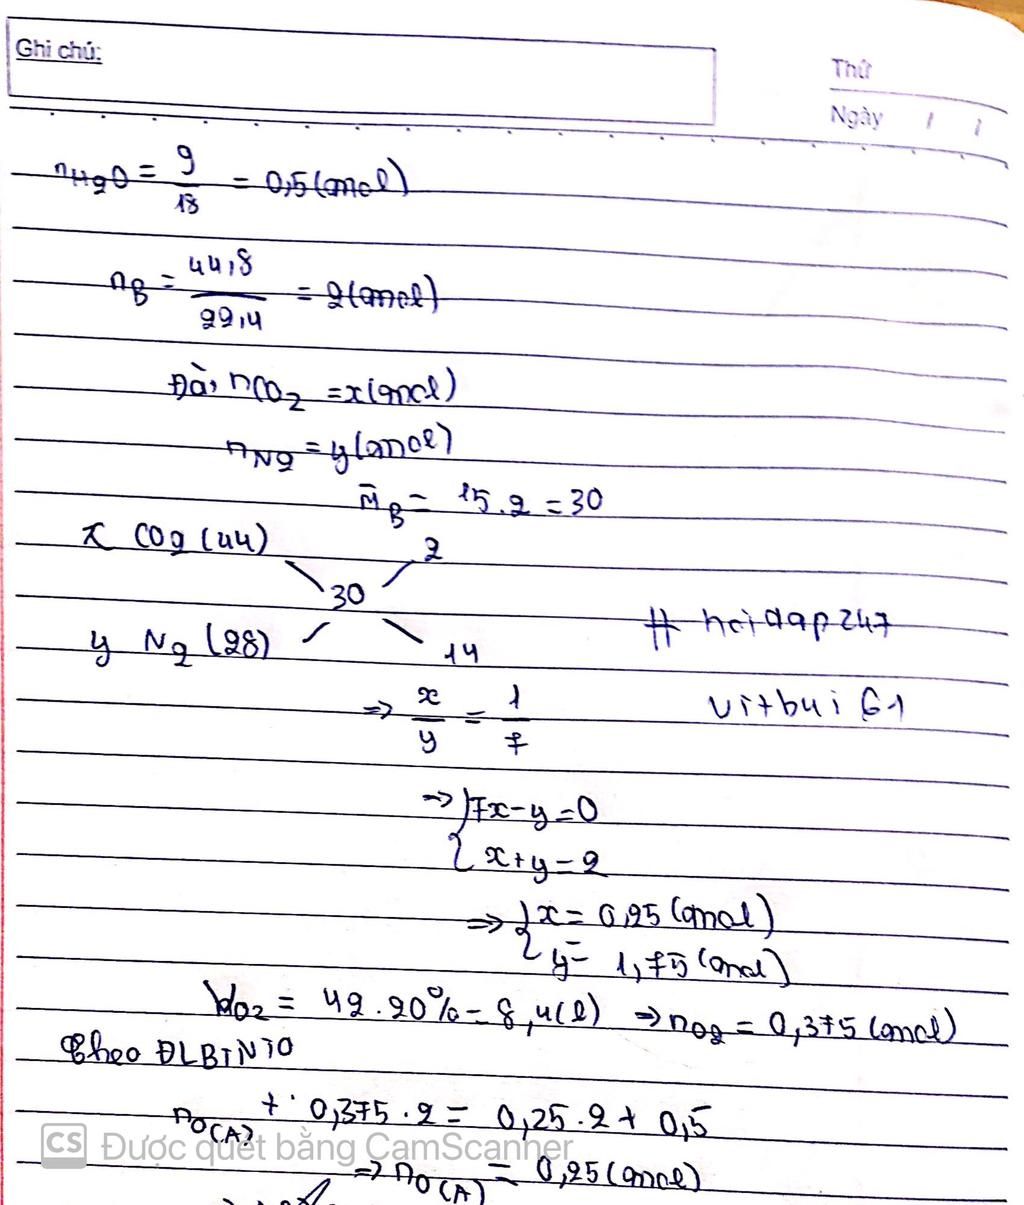 Ghi chú:
Thứ
Ngày / /
nH2O = 9/18 = 0,5(mol)
nB = 44,8/22,4 = 2(mol)
Đặt nCO2 = x(mol)
nN2 = y(mol)
M̄B = 15.2 = 30
x CO2 (44) 2
30
y N2 (28) 14
# hoidap247
=> x/y = 1/7
vitbui61
=> { 7x-y=0
x+y=2
=> { x = 0,25 (mol)
y = 1,75 (mol)
VO2 = 42.20% = 8,4(l) => nO2 = 0,375 (mol)
Theo ĐLBTNTO
nO(A) + 0,375.2 = 0,25.2 + 0,5
CS Được quét bằng CamScanner
=> nO(A) = 0,25(mol)